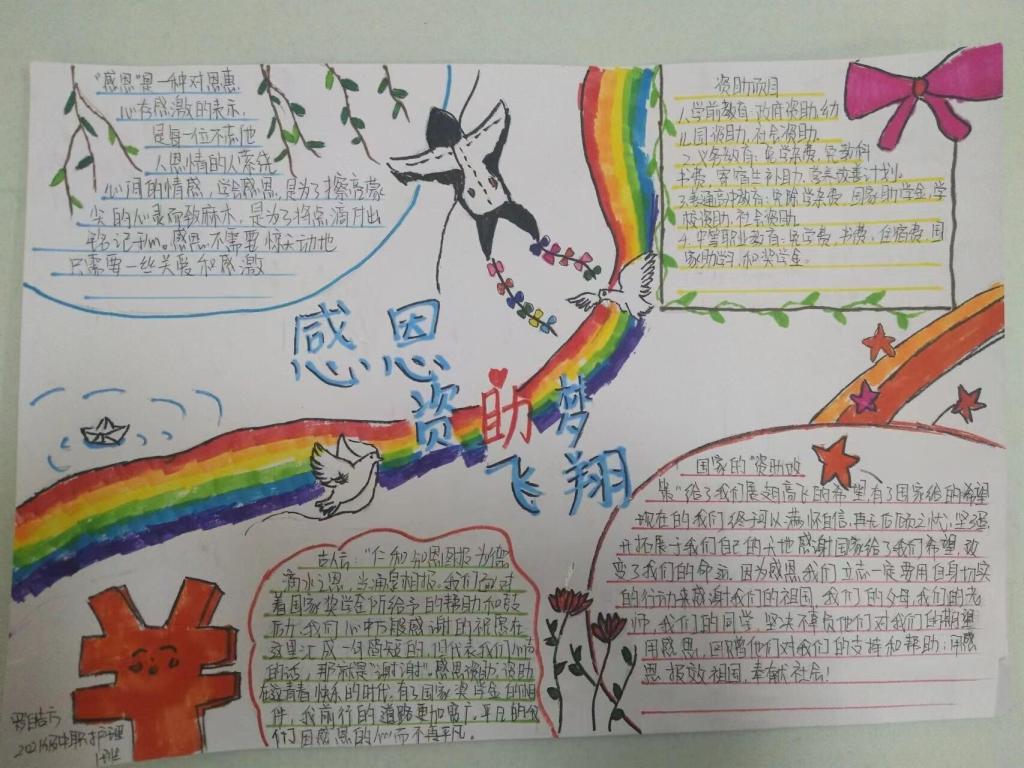 "感恩"是一种对恩惠
心存感激的表示,
是每一位不忘他
人恩情的人萦绕
心间的情感。学会感恩,是为了擦亮蒙
尘的心灵而致麻木,是为了将点滴付出
铭记于心。感恩不需要惊天动地
只需要一些关爱和感激
资助项目
1.学前教育:政府资助,幼
儿园资助,社会资助。
2.义务教育:免学杂费,免教科
书费,寄宿生补助,营养改善计划。
3.普通高中教育:免除学杂费,国家助学金,学
校资助,社会资助。
4.中等职业教育:免学费,书费,住宿费,国
家助学,和奖学金。
感恩
资助梦
飞翔
国家的"资助政
策"给了我们展翅高飞的希望有了国家给的希望
现在的我们终于可以满怀自信,再无后顾之忧,坚强
开拓属于我们自己的天地感谢国家给了我们希望,改
变了我们的命运,因为感恩,我们立志一定要用自身切实
的行动来感谢我们的祖国,我们的父母,我们的老
师,我们的同学,坚决不辜负他们对我们的期望
用感恩,回赠他们对我们的支持和帮助;用感
恩,报效祖国,奉献社会!
古人云:"
滴水之恩,当涌泉相报。我们面对
着国家奖学金所给予的帮助和鼓
励,我们心中万般感谢的祝愿在
这里汇成一句简短的,但代表我们心声
的话,那就是"谢谢"。感恩资助,资助
在这青春快乐的时代,有了国家奖学金的陪
伴,我前行的道路更加宽广,平凡的我
们因感恩的心而不再平凡。
2021级中职护理
1班